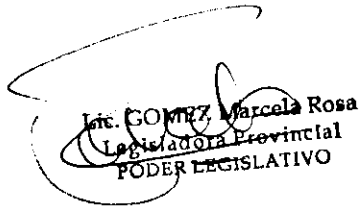 Lic. GOMEZ Marcela Rosa
Legisladora Provincial
PODER LEGISLATIVO